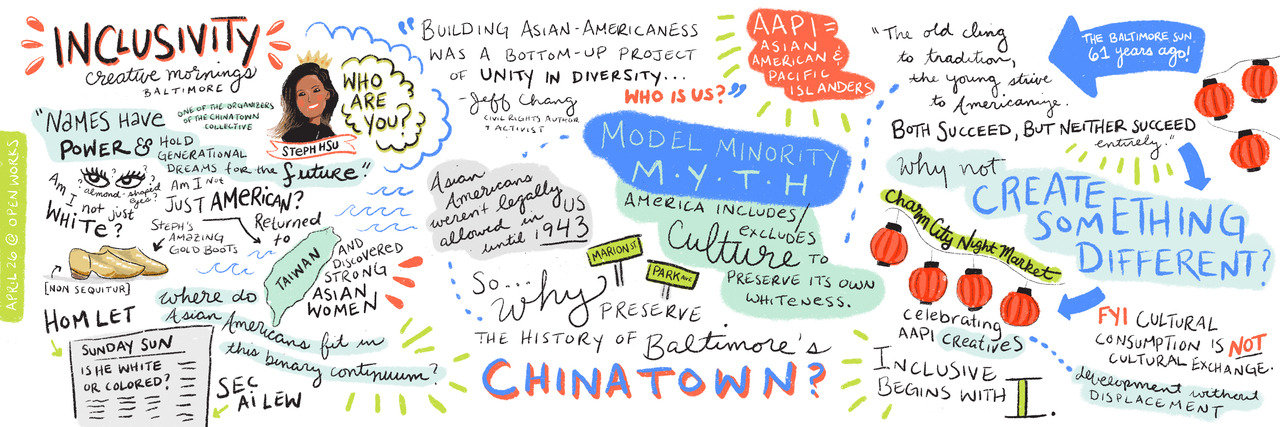 APRIL 26 @ OPEN WORKS
INCLUSIVITY
creative mornings
BALTIMORE
ONE OF THE ORGANIZERS
OF THE CHINATOWN
COLLECTIVE
STEPH HSU
WHO
ARE
YOU?
"NAMES HAVE
POWER & HOLD
GENERATIONAL
DREAMS FOR the future"
? almond-shaped
eyes?
Am I
not just
WHITE?
AM I NOT
JUST AMERICAN?
STEPH'S
AMAZING
GOLD BOOTS
[NON SEQUITUR]
Returned
to
TAIWAN
AND
DISCOVERED
STRONG
ASIAN
WOMEN
where do
Asian Americans fit in
this binary continuum?
HOM LET
SUNDAY SUN
IS HE WHITE
OR COLORED?
SEC
AI LEW
"BUILDING ASIAN-AMERICANESS
WAS A BOTTOM-UP PROJECT
OF UNITY IN DIVERSITY...
WHO IS US?"
-Jeff Chang
CIVIL RIGHTS AUTHOR
& ACTIVIST
AAPI =
ASIAN
AMERICAN &
PACIFIC
ISLANDERS
MODEL MINORITY
M·Y·T·H
Asian
Americans
weren't legally
allowed in US
until 1943
AMERICA INCLUDES/
EXCLUDES
Culture TO
PRESERVE ITS OWN
WHITENESS.
MARION ST
PARK AVE
So...
why PRESERVE
THE HISTORY OF Baltimore's
CHINATOWN?
"The old cling
to tradition,
the young strive
to Americanize.
BOTH SUCCEED, BUT NEITHER SUCCEED
entirely."
THE BALTIMORE SUN,
61 years ago!
why not
CREATE
SOMETHING
DIFFERENT?
Charm City Night Market
celebrating
AAPI creatives
INCLUSIVE
BEGINS WITH I.
FYI CULTURAL
CONSUMPTION IS NOT
CULTURAL EXCHANGE.
development without
DISPLACEMENT